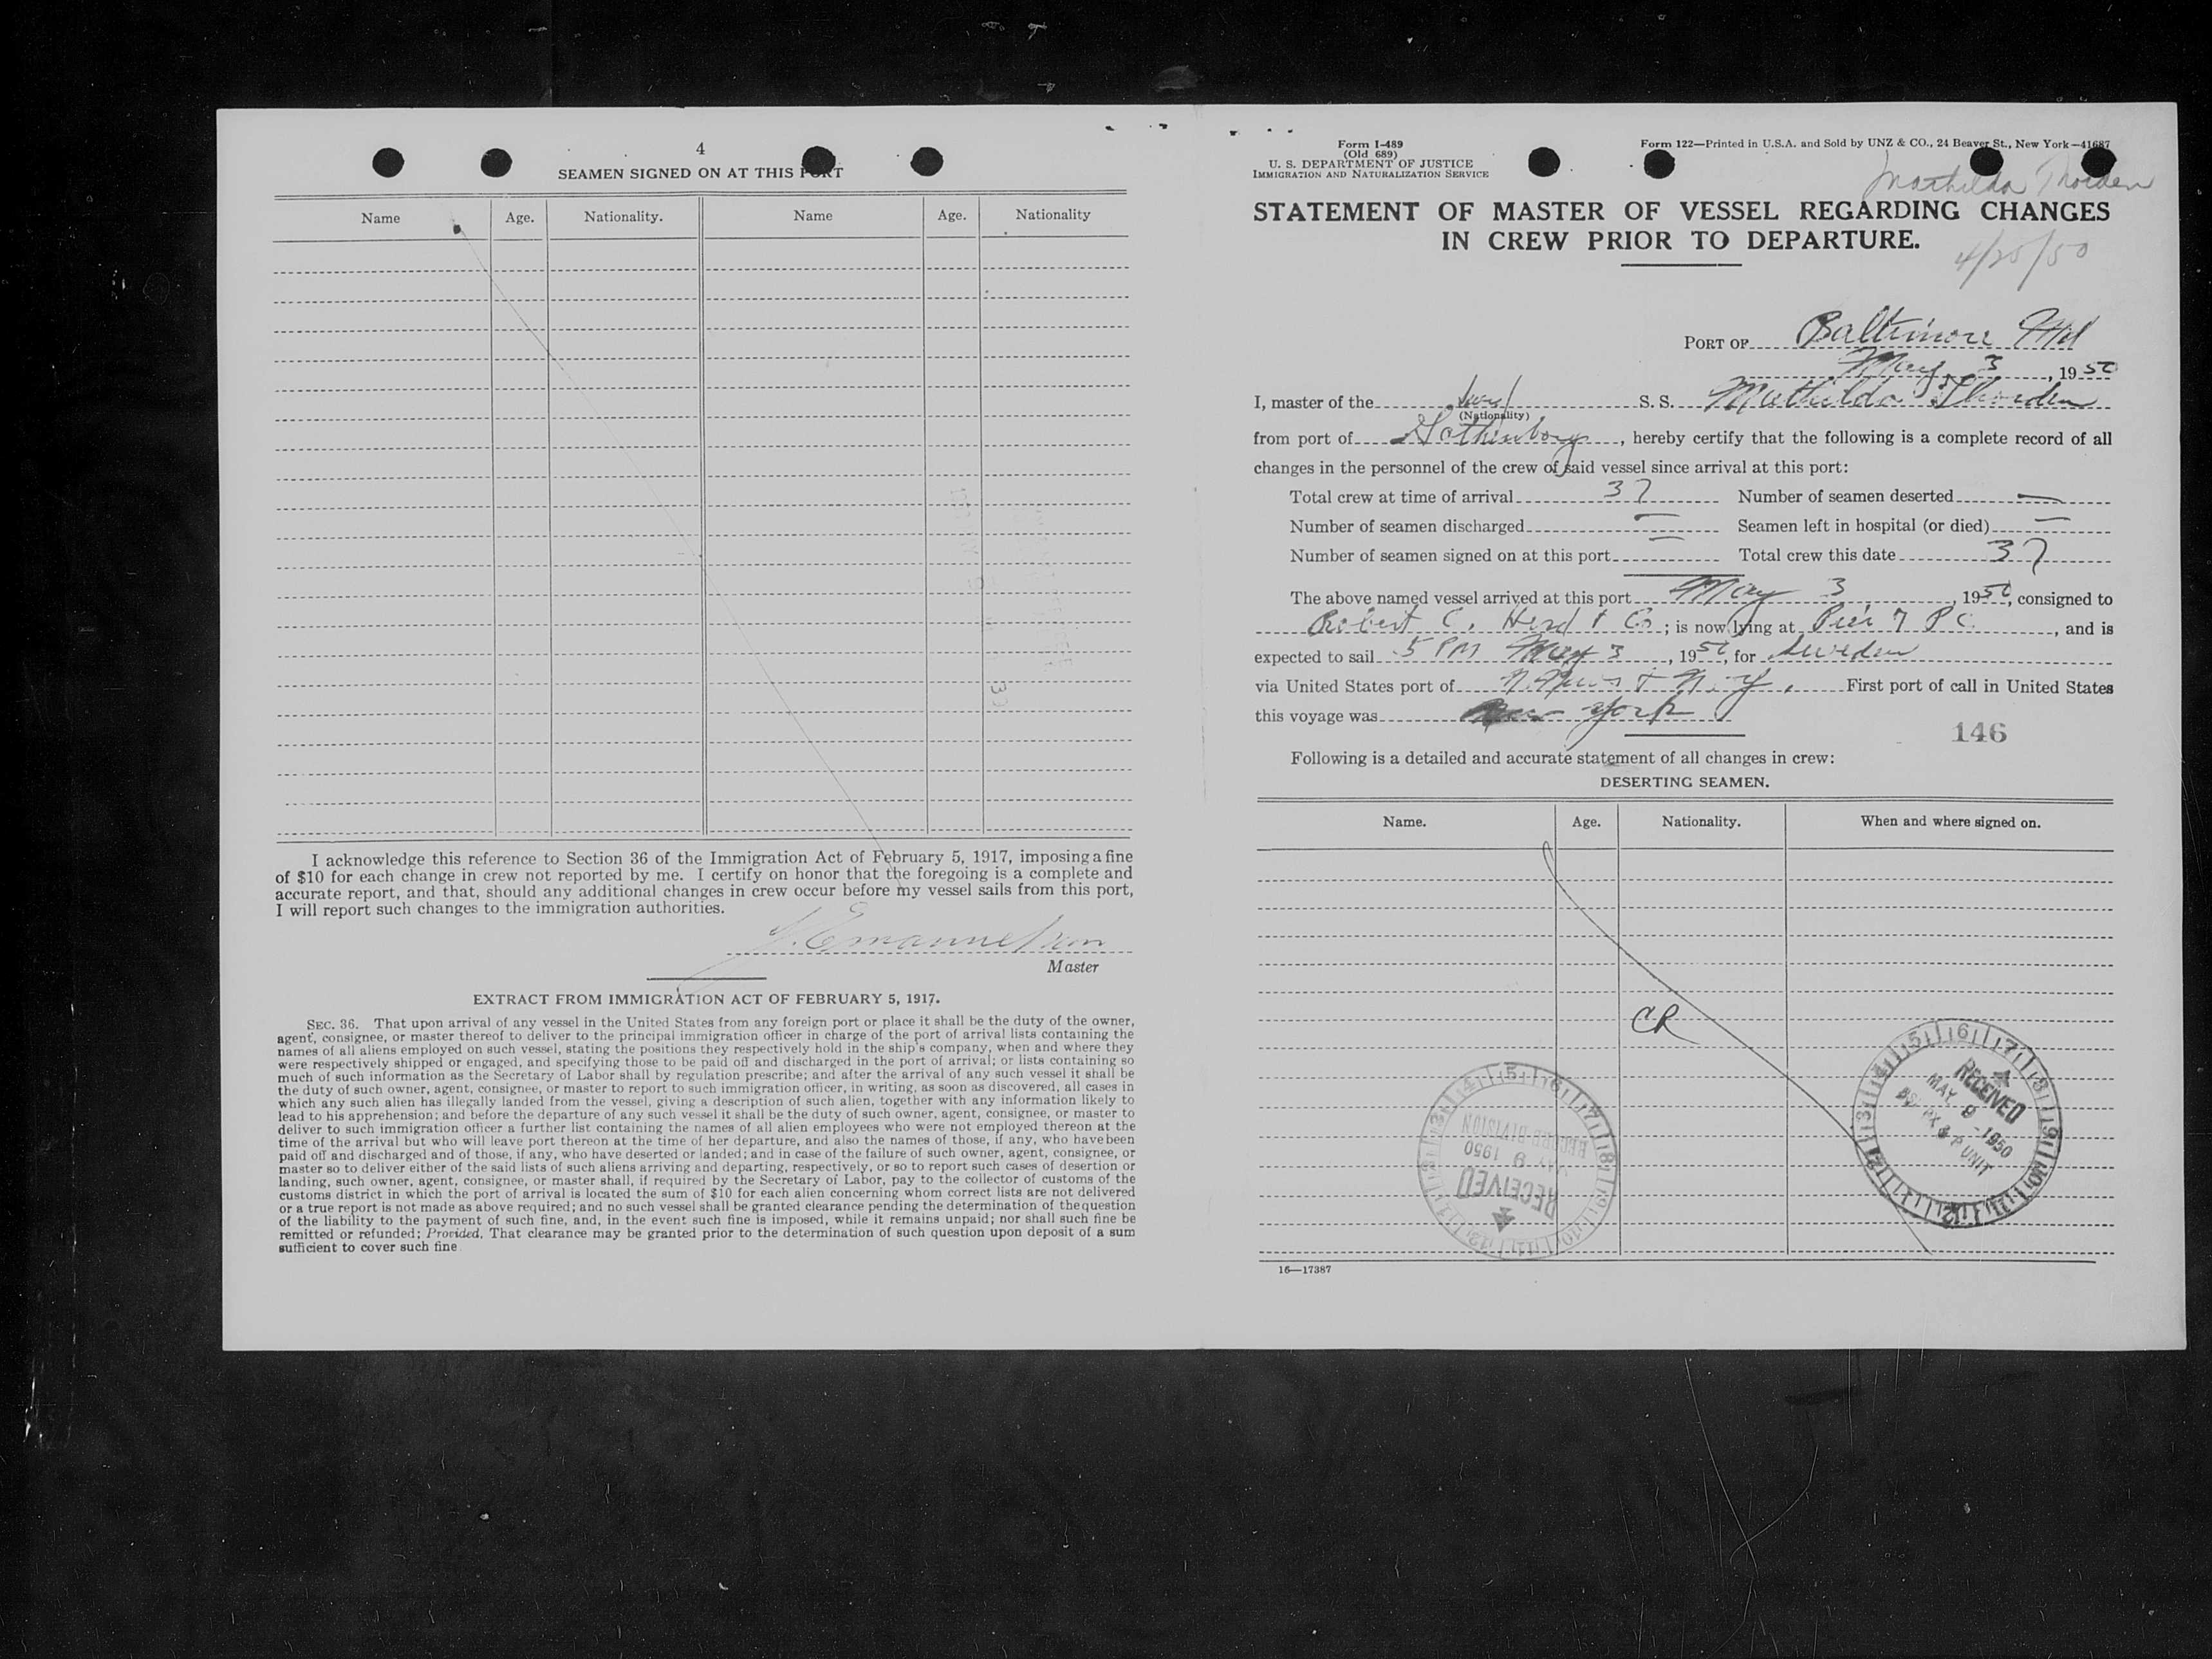 4
SEAMEN SIGNED ON AT THIS PORT
Name Age. Nationality. Name Age. Nationality
I acknowledge this reference to Section 36 of the Immigration Act of February 5, 1917, imposing a fine
of $10 for each change in crew not reported by me. I certify on honor that the foregoing is a complete and
accurate report, and that, should any additional changes in crew occur before my vessel sails from this port,
I will report such changes to the immigration authorities.
Master
EXTRACT FROM IMMIGRATION ACT OF FEBRUARY 5, 1917.
SEC. 36. That upon arrival of any vessel in the United States from any foreign port or place it shall be the duty of the owner,
agent, consignee, or master thereof to deliver to the principal immigration officer in charge of the port of arrival lists containing the
names of all aliens employed on such vessel, stating the positions they respectively hold in the ship's company, when and where they
were respectively shipped or engaged, and specifying those to be paid off and discharged in the port of arrival; or lists containing so
much of such information as the Secretary of Labor shall by regulation prescribe; and after the arrival of any such vessel it shall be
the duty of such owner, agent, consignee, or master to report to such immigration officer, in writing, as soon as discovered, all cases in
which any such alien has illegally landed from the vessel, giving a description of such alien, together with any information likely to
lead to his apprehension; and before the departure of any such vessel it shall be the duty of such owner, agent, consignee, or master to
deliver to such immigration officer a further list containing the names of all alien employees who were not employed thereon at the
time of the arrival but who will leave port thereon at the time of her departure, and also the names of those, if any, who have been
paid off and discharged and of those, if any, who have deserted or landed; and in case of the failure of such owner, agent, consignee, or
master so to deliver either of the said lists of such aliens arriving and departing, respectively, or so to report such cases of desertion or
landing, such owner, agent, consignee, or master shall, if required by the Secretary of Labor, pay to the collector of customs of the
customs district in which the port of arrival is located the sum of $10 for each alien concerning whom correct lists are not delivered
or a true report is not made as above required; and no such vessel shall be granted clearance pending the determination of the question
of the liability to the payment of such fine, and, in the event such fine is imposed, while it remains unpaid; nor shall such fine be
remitted or refunded; Provided, That clearance may be granted prior to the determination of such question upon deposit of a sum
sufficient to cover such fine
Form I-489
(Old 689)
U. S. DEPARTMENT OF JUSTICE
IMMIGRATION AND NATURALIZATION SERVICE
Form 122—Printed in U.S.A. and Sold by UNZ & CO., 24 Beaver St., New York—41687
Mathilda Thorden
STATEMENT OF MASTER OF VESSEL REGARDING CHANGES
IN CREW PRIOR TO DEPARTURE.
4/25/50
PORT OF Baltimore Md
May 3, 1950
I, master of the Swed S. S. Mathilda Thorden
(Nationality)
from port of Gothenborg, hereby certify that the following is a complete record of all
changes in the personnel of the crew of said vessel since arrival at this port:
Total crew at time of arrival 37 Number of seamen deserted —
Number of seamen discharged — Seamen left in hospital (or died) —
Number of seamen signed on at this port — Total crew this date 37
The above named vessel arrived at this port May 3, 1950, consigned to
Robert C. Herd & Co; is now lying at Pier 7 P C, and is
expected to sail 5 PM May 3, 1950, for Sweden
via United States port of N. News & N. Y. First port of call in United States
this voyage was New York
146
Following is a detailed and accurate statement of all changes in crew:
DESERTING SEAMEN.
Name. Age. Nationality. When and where signed on.
CR
RECEIVED
MAY 9 - 1950
RECEIVED
MAY 9 1950
RECORD DIVISION
16—17387